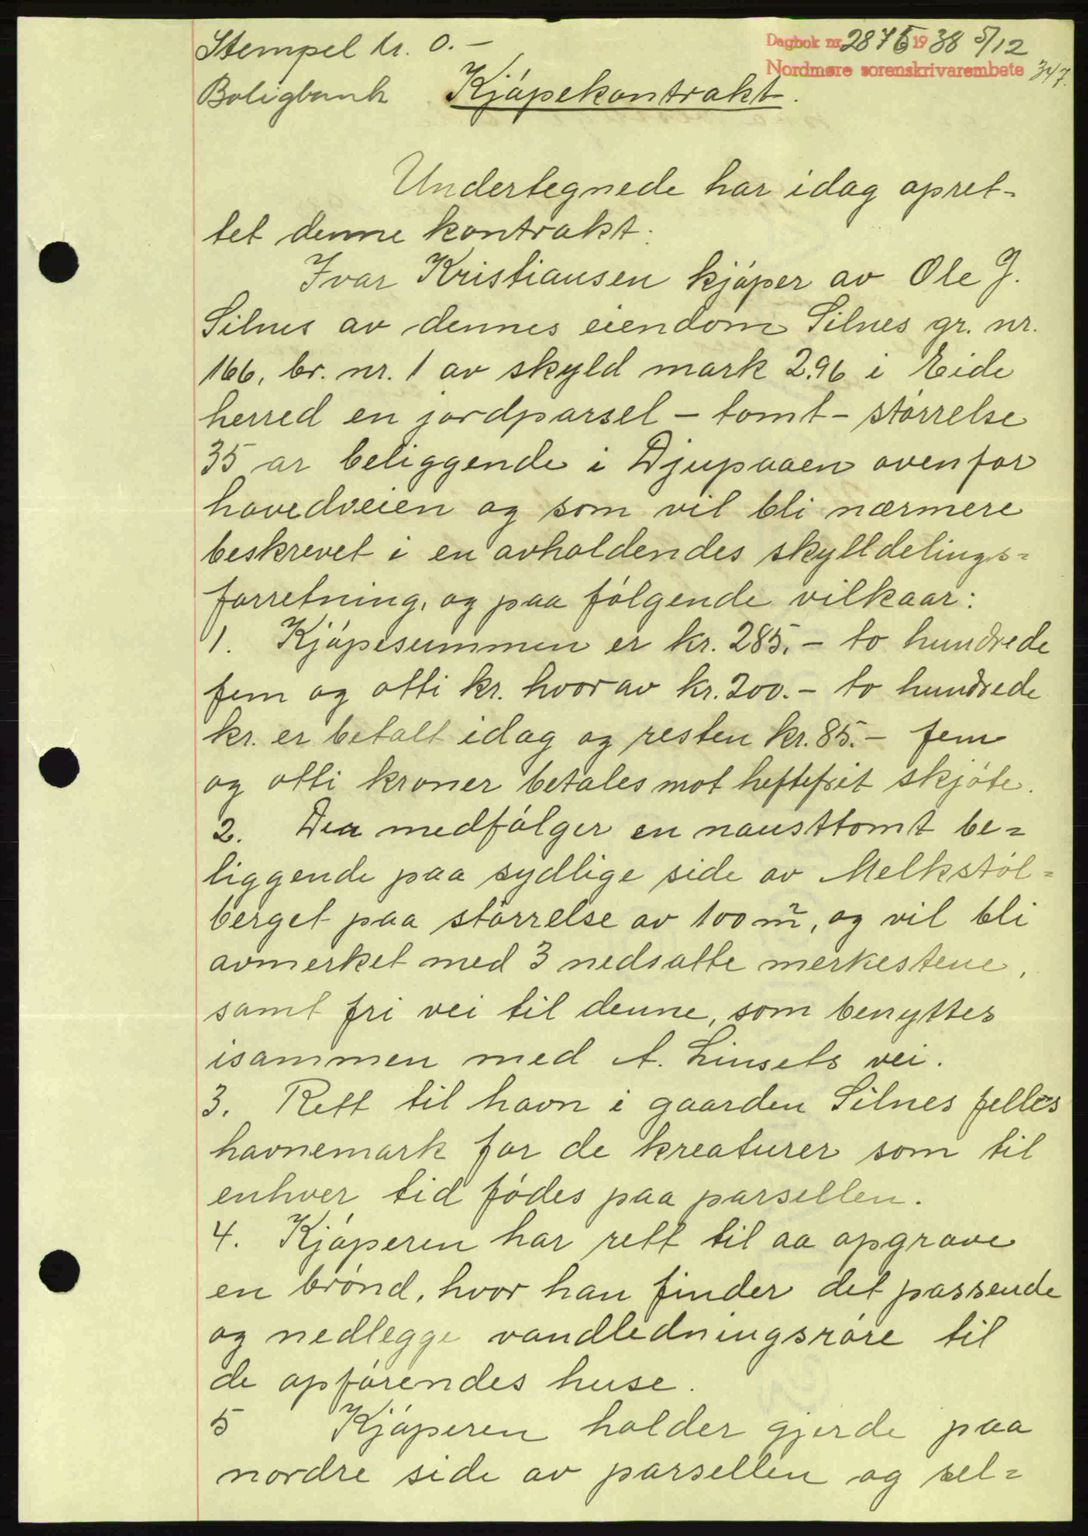 Stempel kr. 0.-
Boligbank
Dagbok nr. 2875 1938 5/12
Nordmøre sorenskrivarembete 347.
Kjópekontrakt.
Undertegnede har idag opret-
tet denne kontrakt:
Ivar Kristiansen kjóper av Ole J.
Silnes av dennes eiendom Silnes gr. nr.
166, br. nr. 1 av skyld mark 2.96 i Eide
herred en jordparsel - tomt - stórrelse
35 ar beliggende i Djupaaen ovenfor
hovedveien og som vil bli nærmere
beskrevet i en avholdendes skylldelings=
forretning, og paa fólgende vilkaar:
1. Kjópesummen er kr. 285.- to hundrede
fem og otti kr. hvorav kr. 200.- to hundrede
kr. er betalt idag og resten kr. 85.- fem
og otti kroner betales mot heftefrit skjóte.
2. Der medfólger en nausttomt be=
liggende paa sydlige side av Melkstól=
berget paa stórrelse av 100 m², og vil bli
avmerket med 3 nedsatte merkestene,
samt fri vei til denne, som benyttes
isammen med A. Linsets vei.
3. Rett til havn i gaarden Silnes felles
havnemark for de kreaturer som til
enhver tid fódes paa parsellen.
4. Kjóperen har rett til aa opgrave
en brónd, hvor han finder det passende
og nedlegge vandledningsróre til
de opfórendes huse.
5 Kjóperen holder gjerde paa
nordre side av parsellen og sel=